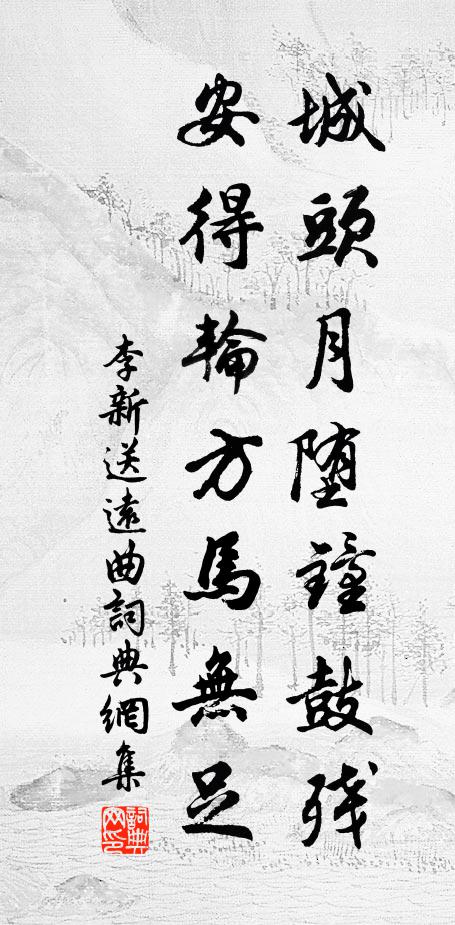 城頭月堕鐘鼓殘
安得輪方馬無足
李新送遠曲詞典網集
詞典網印